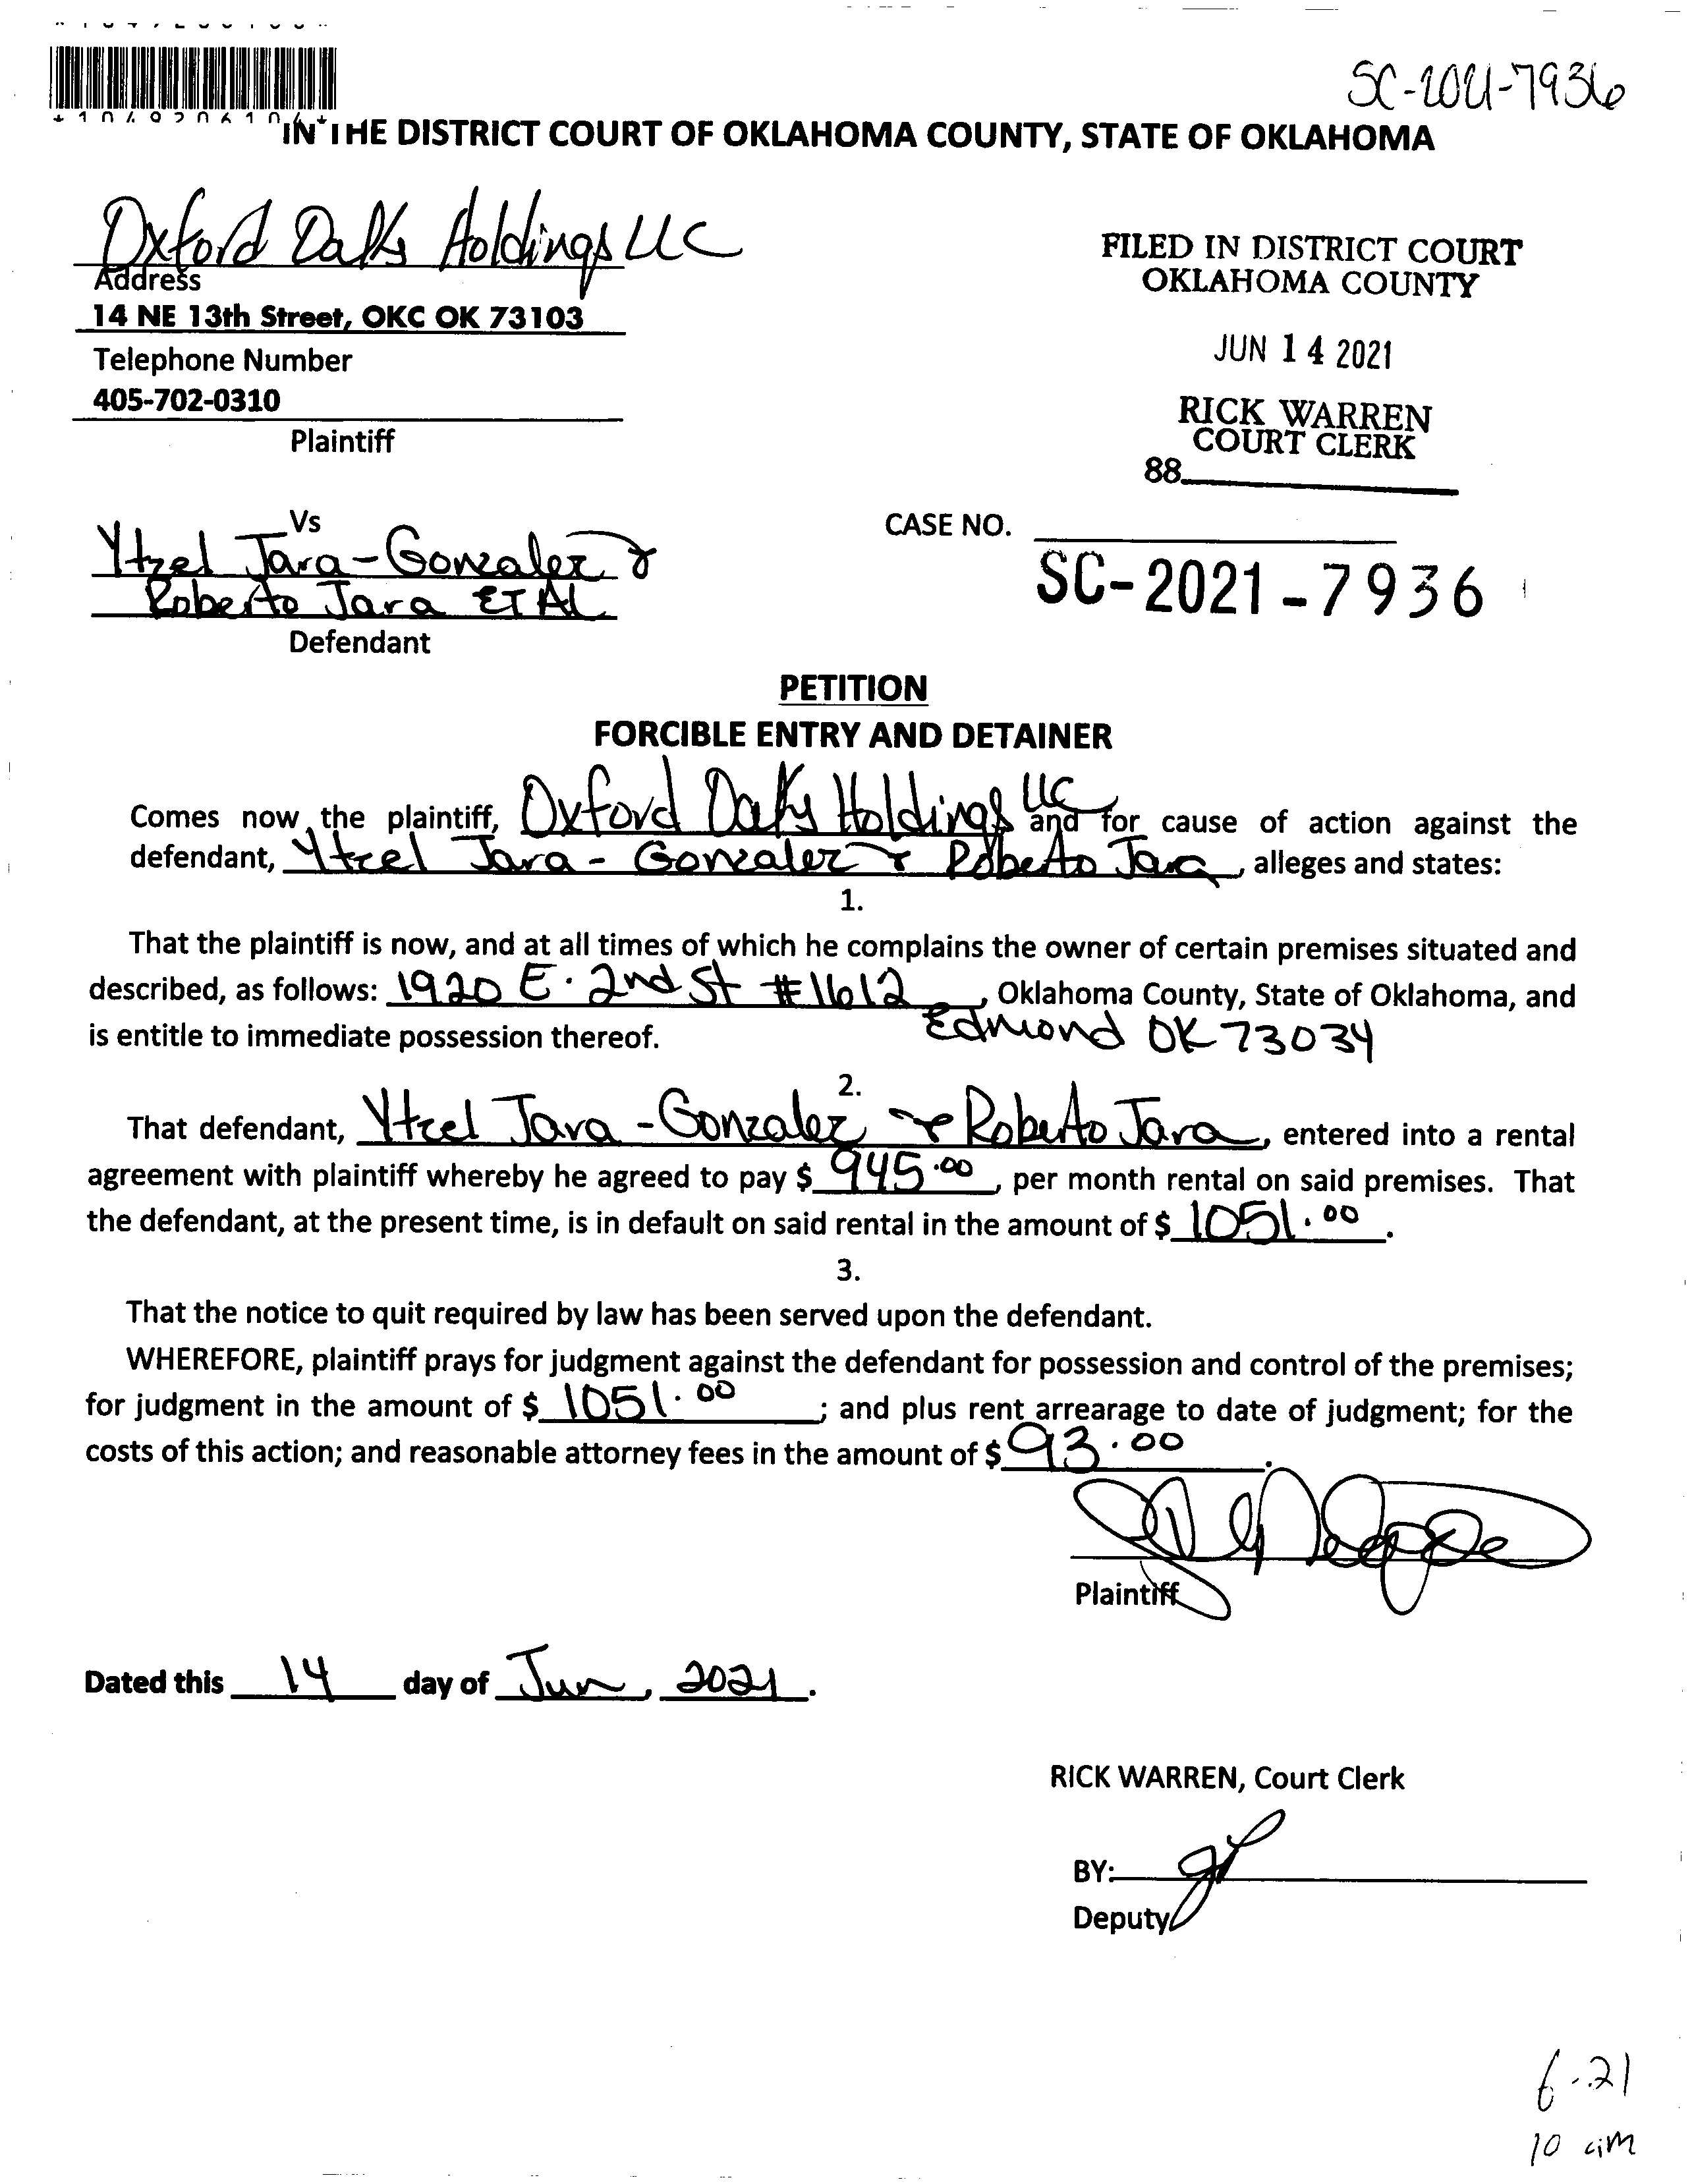 SC-2021-7936
IN THE DISTRICT COURT OF OKLAHOMA COUNTY, STATE OF OKLAHOMA
Oxford Oaks Holdings LLC
Address
14 NE 13th Street, OKC OK 73103
Telephone Number
405-702-0310
Plaintiff
FILED IN DISTRICT COURT
OKLAHOMA COUNTY
JUN 14 2021
RICK WARREN
COURT CLERK
88
Vs
Ytzel Jara-Gonzalez &
Roberto Jara ET AL
Defendant
CASE NO.
SC-2021-7936
PETITION
FORCIBLE ENTRY AND DETAINER
Comes now the plaintiff, Oxford Oaks Holdings LLC and for cause of action against the
defendant, Ytzel Jara-Gonzalez & Roberto Jara, alleges and states:
1.
That the plaintiff is now, and at all times of which he complains the owner of certain premises situated and
described, as follows: 1920 E. 2nd St #1612, Oklahoma County, State of Oklahoma, and
is entitle to immediate possession thereof. Edmond OK 73034
2.
That defendant, Ytzel Jara-Gonzalez & Roberto Jara, entered into a rental
agreement with plaintiff whereby he agreed to pay $ 945.00, per month rental on said premises. That
the defendant, at the present time, is in default on said rental in the amount of $ 1051.00.
3.
That the notice to quit required by law has been served upon the defendant.
WHEREFORE, plaintiff prays for judgment against the defendant for possession and control of the premises;
for judgment in the amount of $ 1051.00; and plus rent arrearage to date of judgment; for the
costs of this action; and reasonable attorney fees in the amount of $ 93.00.
Plaintiff
Dated this 14 day of Jun, 2021.
RICK WARREN, Court Clerk
BY:
Deputy
6-21
10 am